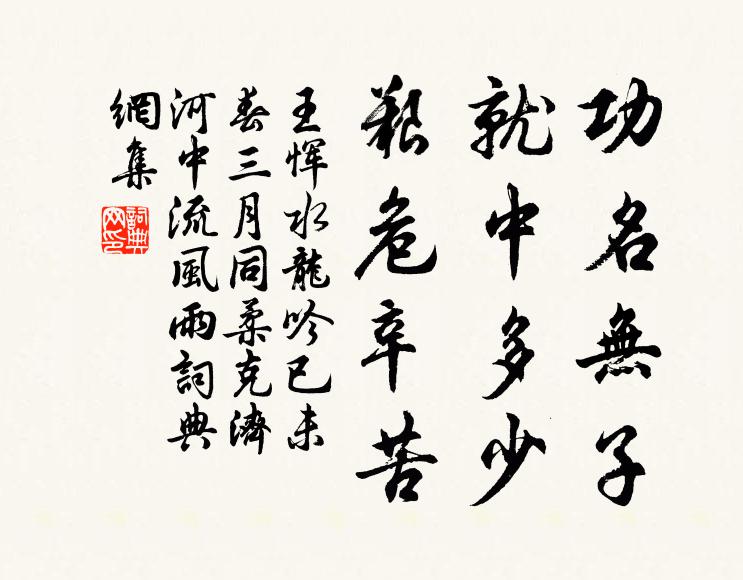 功名無子
就中多少
艱危辛苦
王惲水龍吟己未
春三月同柔克濟
河中流風雨詞典
網集
詞典
网印